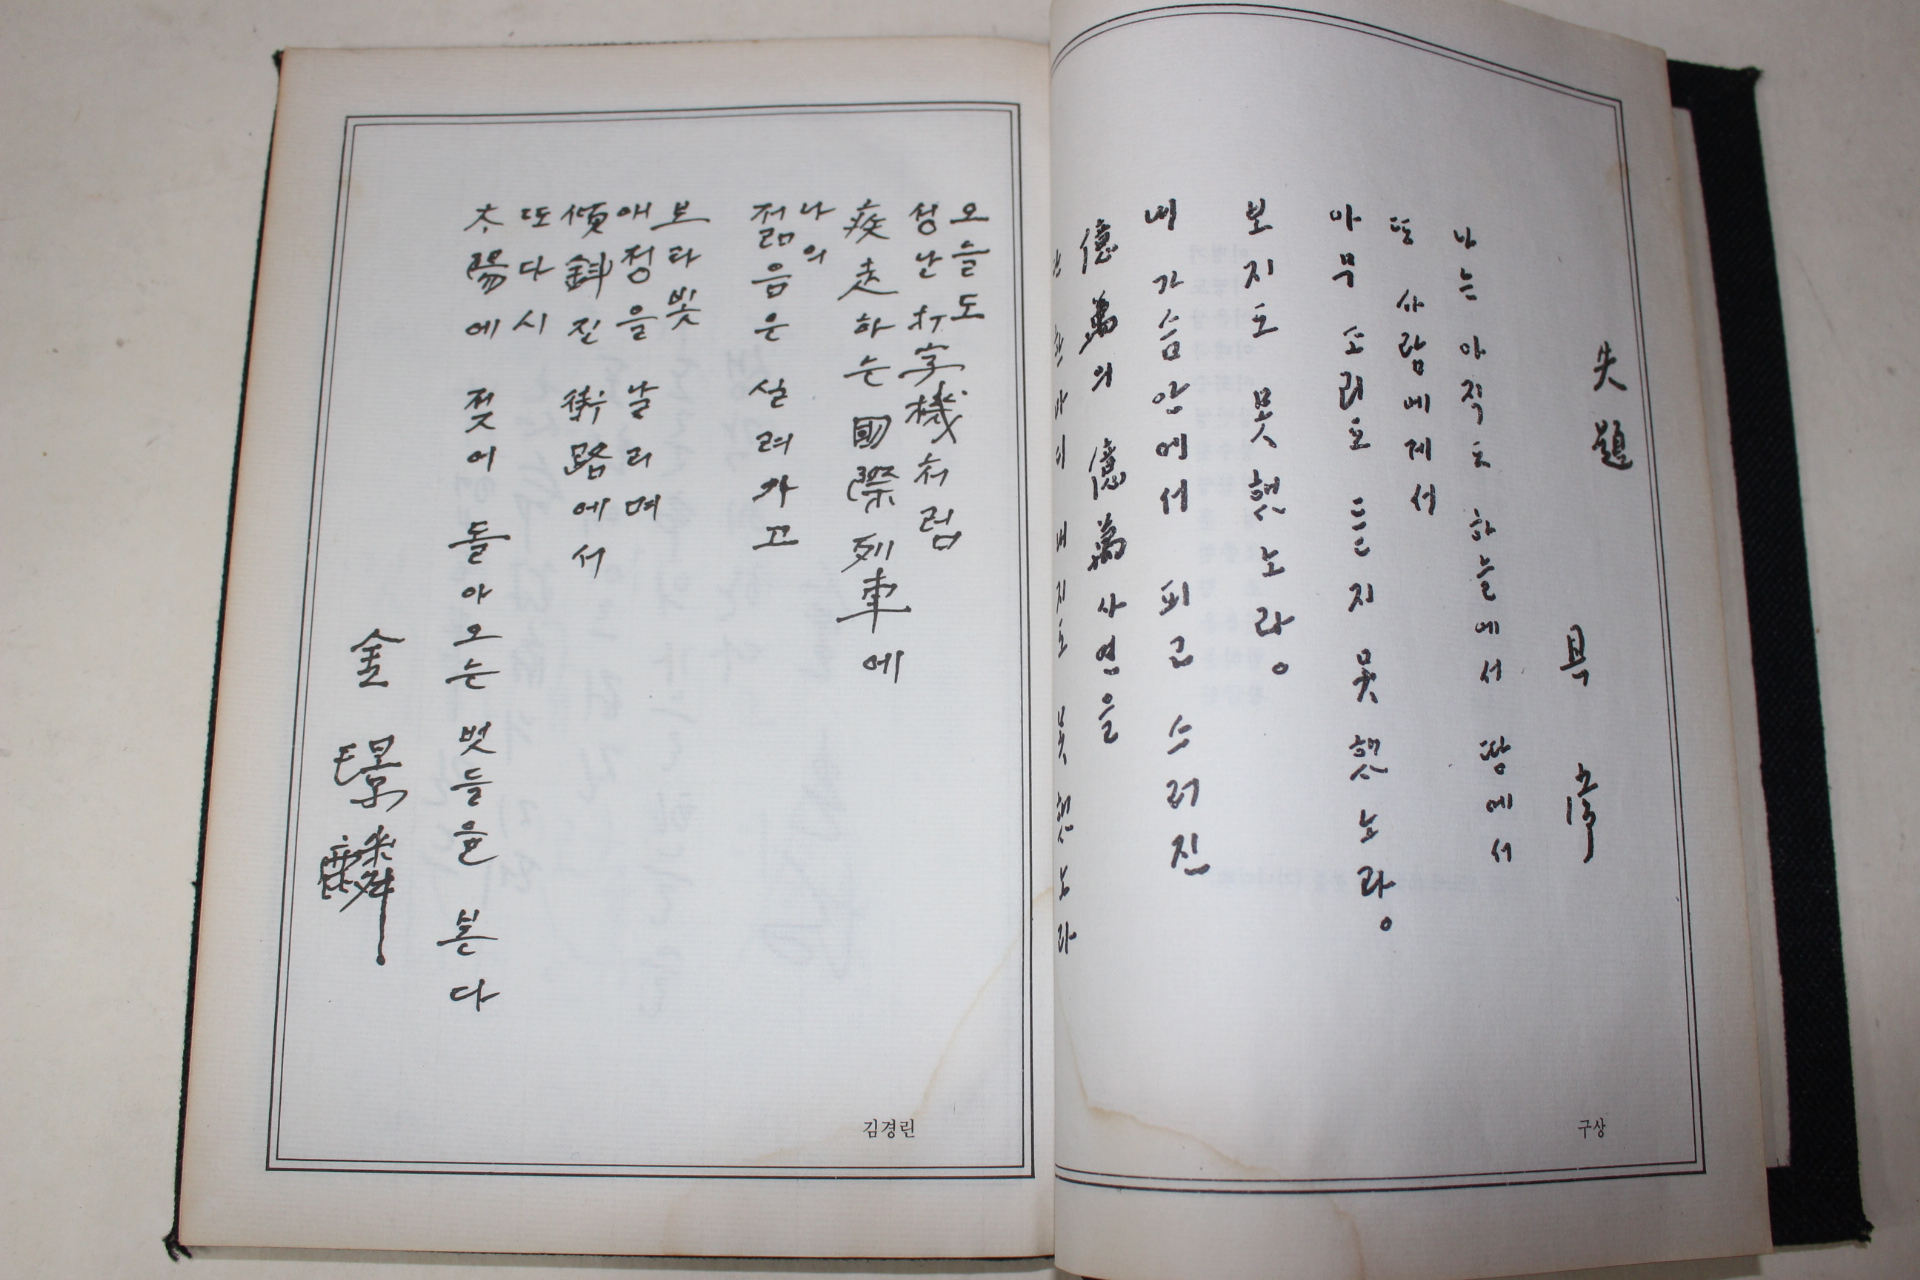 失題
具 常
나는 아직도 하늘에서 땅에서
또 사람에게서
아무 소리도 듣지 못했노라。
보지도 못했노라。
내 가슴안에서 피고 스러진
億萬의 億萬 사연을
바 내지도 못했노라
구상
오늘도
성난 打字機처럼
疾走하는 國際列車에
나의
젊음은 실려가고
보라빛
애정을 날리며
傾斜진 街路에서
또다시
太陽에 젖어 돌아오는 벗들을 본다
金 璟 麟
김경린